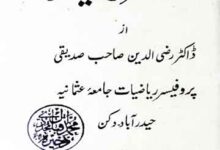 از
ڈاکٹر رضی الدین صاحب صدیقی
پروفیسر ریاضیات جامعۂ عثمانیہ
حیدرآباد۔ دکن